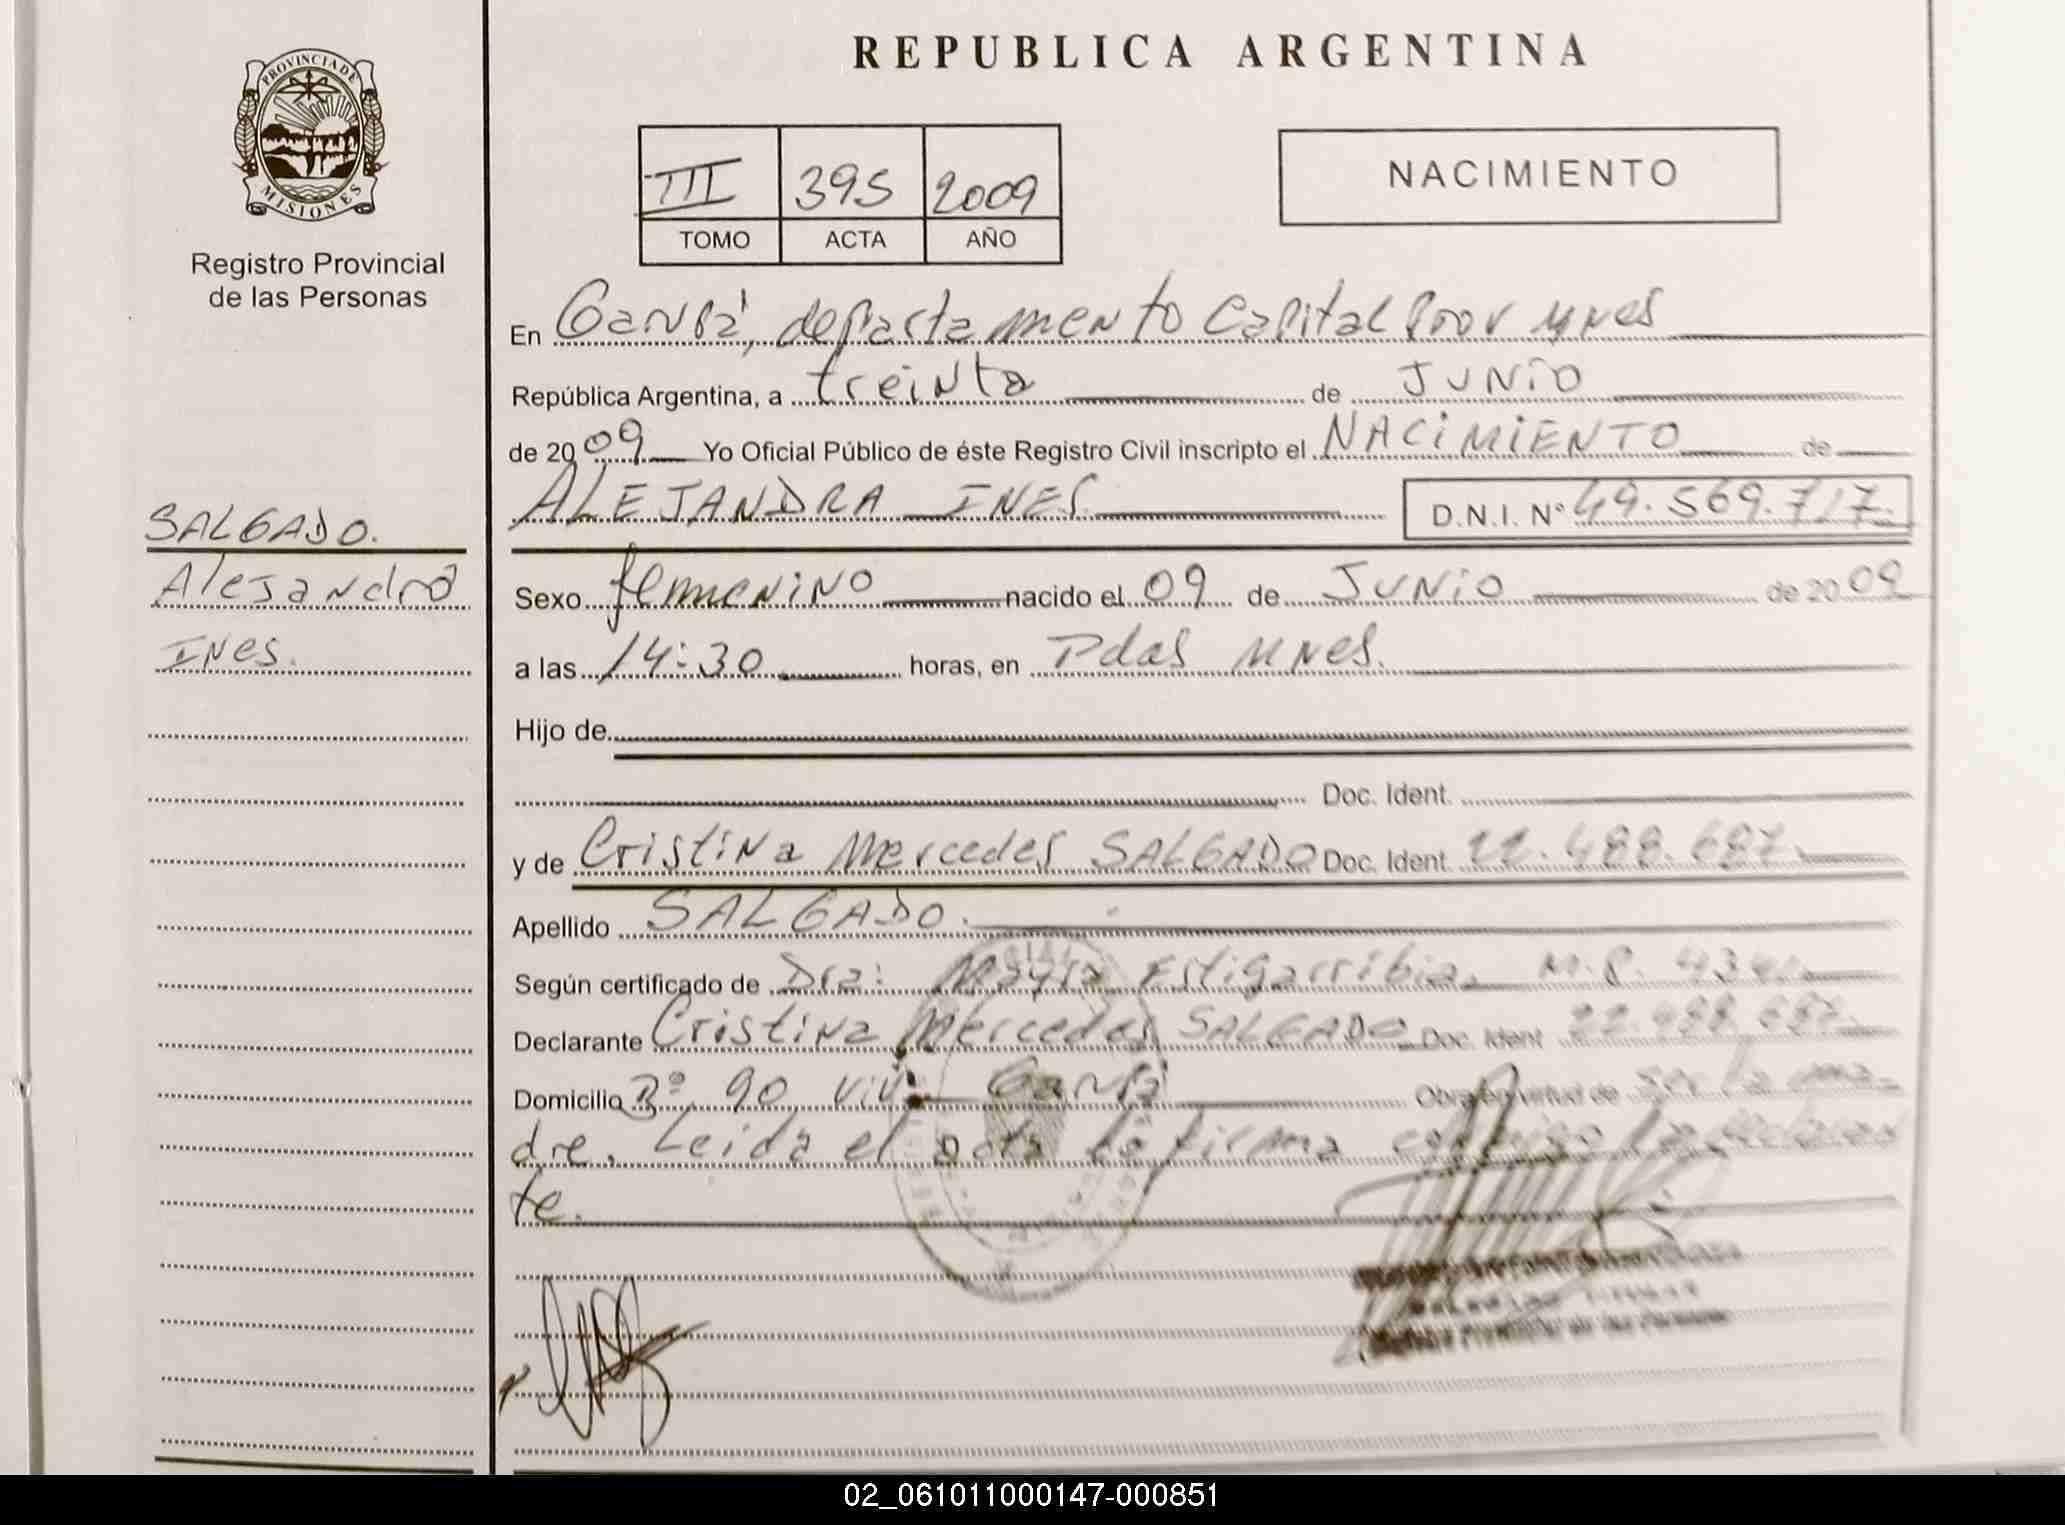 REPUBLICA ARGENTINA
PROVINCIA DE MISIONES
Registro Provincial
de las Personas
III 395 2009
TOMO ACTA AÑO
NACIMIENTO
En Garupá, departamento Capital Prov Mnes
República Argentina, a treinta de JUNIO
de 2009 Yo Oficial Público de éste Registro Civil inscripto el NACIMIENTO de
ALEJANDRA INES D.N.I. N° 49.569.717.
SALGADO.
Alejandra
INes.
Sexo femenino nacido el 09 de JUNIO de 2009
a las 14:30 horas, en Pdas Mnes.
Hijo de
Doc. Ident.
y de Cristina Mercedes SALGADO Doc. Ident. 22.488.687.
Apellido SALGADO.
Según certificado de Dra: Mayra Estigarribia. M.P.
Declarante Cristina Mercedes SALGADO Doc. Ident 22.488.687.
Domicilio Bº 90 viv. Garupá Obra en virtud de ser la ma-
dre. Leida el acta la firma conmigo la declaran
te.
02_061011000147-000851